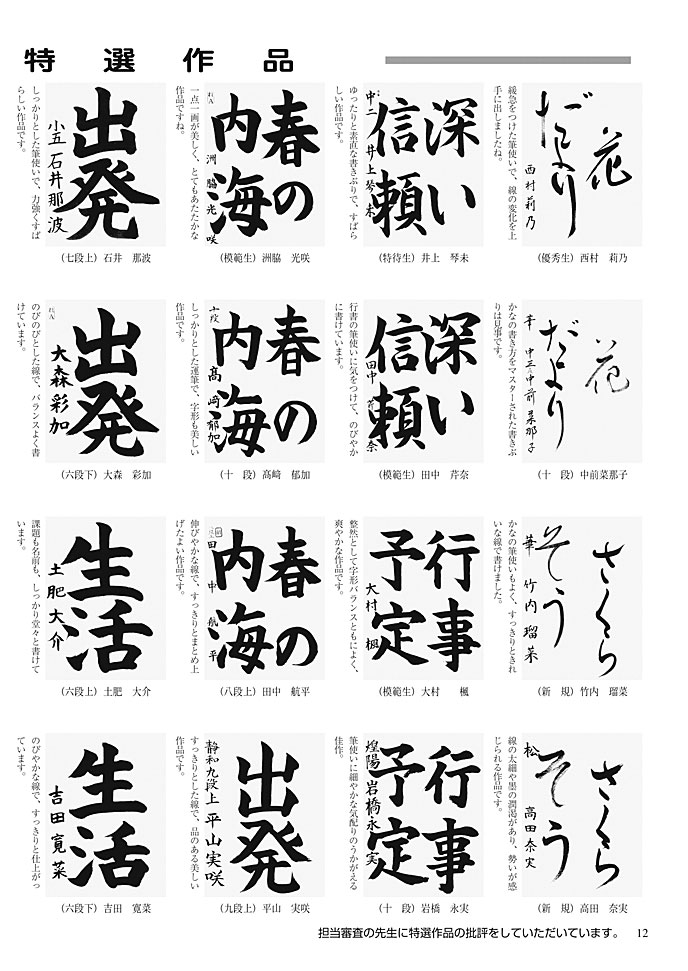 特選作品
花
だより
西村莉乃
緩急をつけた筆使いで、線の変化を上
手に出しましたね。
(優秀生) 西村　莉乃
深い
信頼
中二 井上琴未
ゆったりと素直な書きぶりで、すばら
しい作品です。
(特待生) 井上　琴未
春の
内海
洲脇光咲
一点一画が美しく、とてもあたたかな
作品ですね。
(模範生) 洲脇　光咲
出発
小五 石井那波
しっかりとした筆使いで、力強くすば
らしい作品です。
(七段上) 石井　那波
花
だより
中三 中前菜那子
かなの書き方をマスターされた書きぶ
りは見事です。
(十　段) 中前菜那子
深い
信頼
田中芹奈
行書の筆使いに気をつけて、のびやか
に書けています。
(模範生) 田中　芹奈
春の
内海
髙﨑郁加
しっかりとした運筆で、字形も美しい
作品です。
(十　段) 髙﨑　郁加
出発
大森彩加
のびのびとした線で、バランスよく書
けています。
(六段下) 大森　彩加
さくら
そう
華 竹内瑠菜
かなの筆使いもよく、すっきりときれ
いな線で書けました。
(新　規) 竹内　瑠菜
行事
予定
大村楓
整然として字形バランスともによく、
爽やかな作品です。
(模範生) 大村　　楓
春の
内海
田中航平
伸びやかな線で、すっきりとまとめ上
げたよい作品です。
(八段上) 田中　航平
生活
土肥大介
課題も名前も、しっかり堂々と書けて
います。
(六段上) 土肥　大介
さくら
そう
松 高田奈実
線の太細や墨の潤渇があり、勢いが感
じられる作品です。
(新　規) 高田　奈実
行事
予定
煌陽 岩橋永実
筆使いに細やかな気配りのうかがえる
佳作。
(十　段) 岩橋　永実
出発
静和九段上 平山実咲
すっきりとした線で、品のある美しい
作品です。
(九段上) 平山　実咲
生活
吉田寛菜
のびやかな線で、すっきりと仕上がっ
ています。
(六段下) 吉田　寛菜
担当審査の先生に特選作品の批評をしていただいています。　12